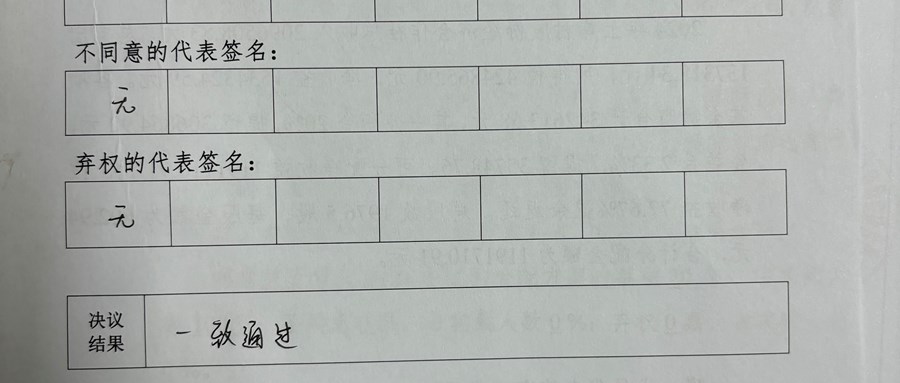 不同意的代表签名:
无
弃权的代表签名:
无
决议
结果
一致通过